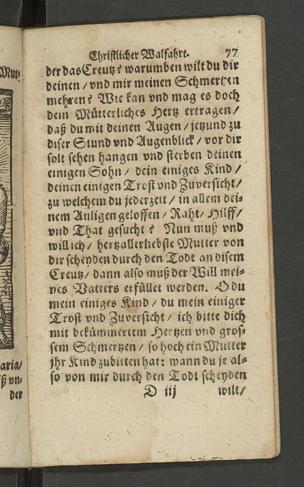 Christlicher Walfahrt. 77
der das Creutz? warumben wilt du dir
deinen / vnd mir meinen Schmertzen
mehren? Wie kan vnd mag es doch
dein Mütterliches Hertz ertragen /
daß du mit deinen Augen / jetzund zu
diser Stund vnd Augenblick / vor dir
solt sehen hangen vnd sterben deinen
einigen Sohn / dein einiges Kind /
deinen einigen Trost vnd Zuversicht /
zu welchem du jederzeit / in allem dei-
nem Anligen geloffen / Raht / Hilff /
vnd That gesucht? Nun muß vnd
will ich / hertzallerliebste Mutter von
dir scheyden durch den Todt an disem
Creutz / dann also muß der Will mei-
nes Vatters erfüllet werden. O du
mein einiges Kind / du mein einiger
Trost vnd Zuversicht / ich bitte dich
mit bekümmertem Hertzen vnd gros-
sem Schmertzen / so hoch ein Mutter
jhr Kind zubitten hat: wann du je al-
so von mir durch den Todt scheyden
D iij wilt /
aria /
ß vn-
der